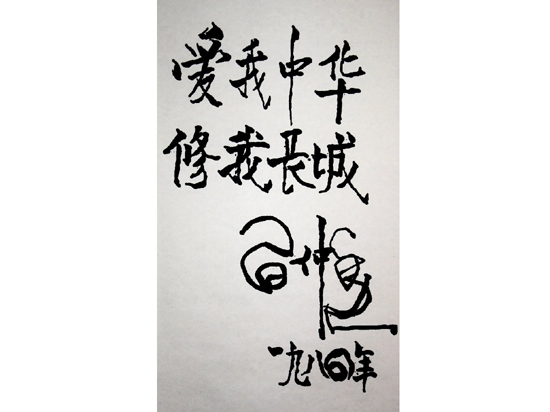 爱我中华
修我長城
習仲勋
一九八四年